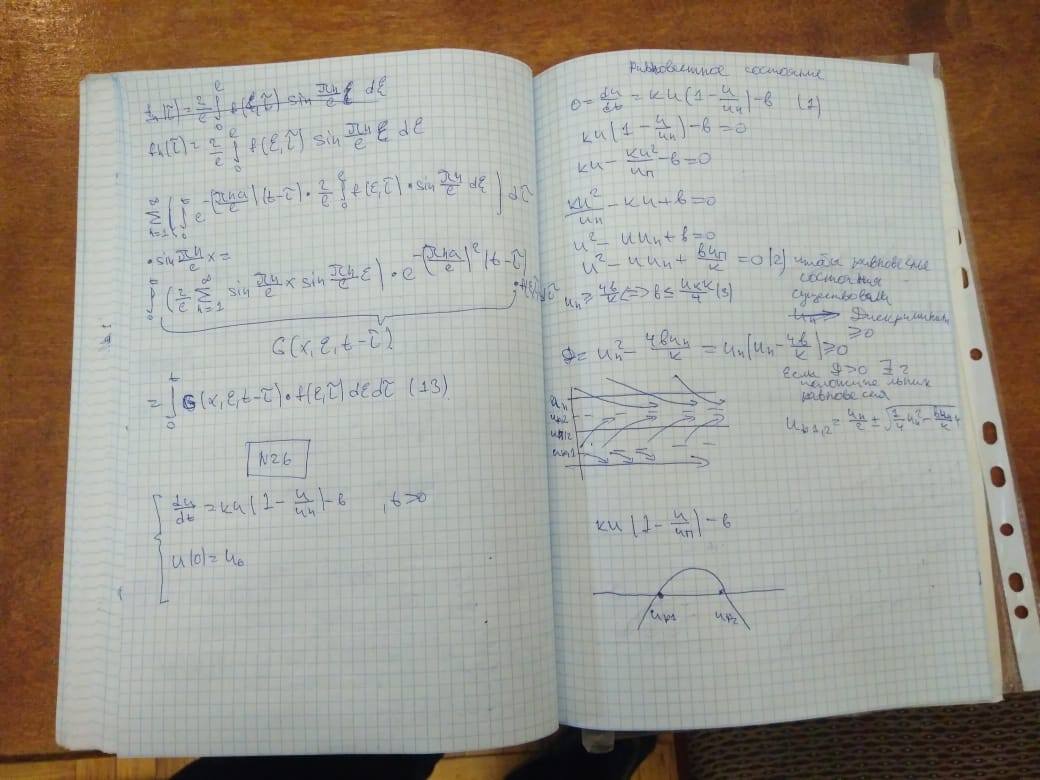 fn(τ) = 2/ℓ ∫₀^ℓ f(ξ,τ) sin πn/ℓ ξ dξ
fn(τ) = 2/ℓ ∫₀^ℓ f(ξ,τ) sin πn/ℓ ξ dξ
∑ₙ₌₁^∞ (∫₀^t e^-(πna/ℓ)(t-τ) · 2/ℓ ∫₀^ℓ f(ξ,τ) · sin πn/ℓ dξ) dτ
· sin πn/ℓ x =
(2/ℓ ∑ₙ₌₁^∞ sin πn/ℓ x sin πn/ℓ ξ) · e^-(πna/ℓ)² (t-τ)
G(x,ξ,t-τ)
= ∫₀^t G(x,ξ,t-τ) · f(ξ,τ) dξ dτ (13)
N26
du/dt = ku(1 - u/uп) - b , t>0
u(0) = u₀
Равновестное состояние
0 = du/dt = ku(1 - u/uп) - b (1)
ku(1 - u/uп) - b = 0
ku - ku²/uп - b = 0
ku²/uп - ku + b = 0
u² - uuп + b = 0
u² - uuп + buп/k = 0 (2) чтобы равновесные
состояния
существовали
uп ≥ 4b/k <=> b ≤ (3)
Дискриминант
≥0
D = uп² - 4buп/k = uп(uп - 4b/k) ≥ 0
Если D>0 ∃ 2
положительных
равновесия
uр1,2 = uп/2 ± √(1/4 uп² - buп/k)
uп
uр2
uп/2
uр1
ku(1 - u/uп) - b
uр1 uр2